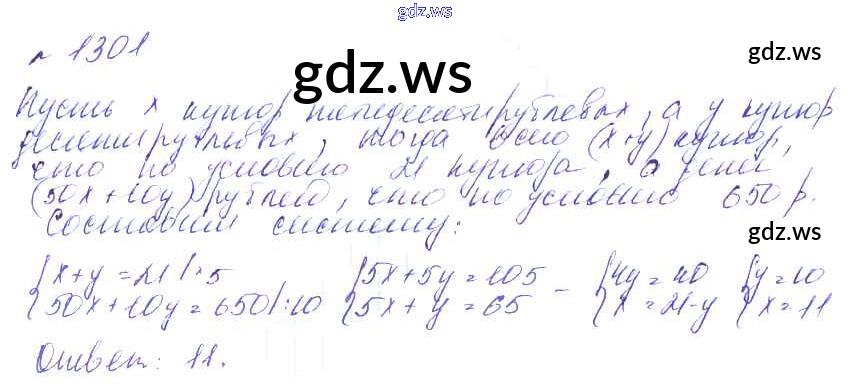 gdz.ws
№ 1301
gdz.ws
gdz.ws
Пусть x купюр пятидесятирублевых, а y купюр
десятирублевых, тогда всего (x+y) купюр,
что по условию 21 купюра, а денег
(50x+10y) рублей, что по условию 650 р.
Составим систему:
gdz.ws
{x+y=21 |·5 {5x+5y=105 - {4y=40 {y=10
{50x+10y=650 |:10 {5x+y=65 {x=21-y {x=11
Ответ: 11.
gdz.ws